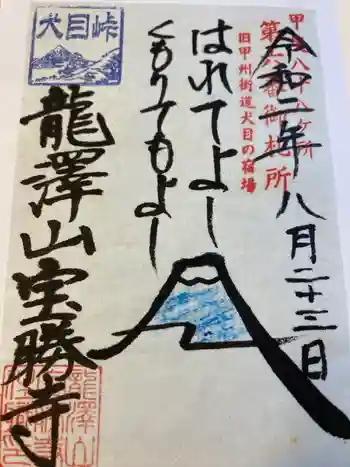 犬目峠
甲州八十八ヶ所
第六番御札所
旧甲州街道犬目の宿場
令和二年八月二十三日
はれてよー
くもりてもよー
龍澤山宝勝寺